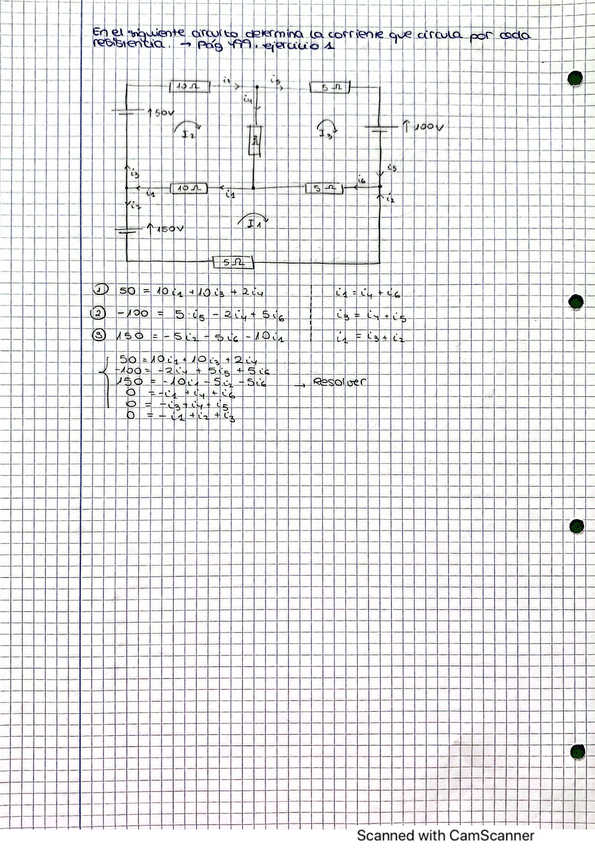 En el siguiente circuito determina la corriente que circula por cada
resistencia. → Pág 499, ejercicio 1
10Ω i3 i5 5Ω
i4
↑50V I2 I3 ↑100V
i3 i5
i1 10Ω i1 5Ω i6
i2 i2
↑150V I1
5Ω
① 50 = 10i1 + 10i3 + 2i4 i1 = i4 + i6
② -100 = 5·i5 - 2i4 + 5i6 i3 = i4 + i5
③ 150 = -5i2 - 5i6 - 10i1 i1 = i3 + i2
50 = 10i1 + 10i3 + 2i4
-100 = -2i4 + 5i5 + 5i6
150 = -10i1 - 5i2 - 5i6 → Resolver
0 = -i1 + i4 + i6
0 = -i3 + i4 + i5
0 = -i1 + i2 + i3
Scanned with CamScanner